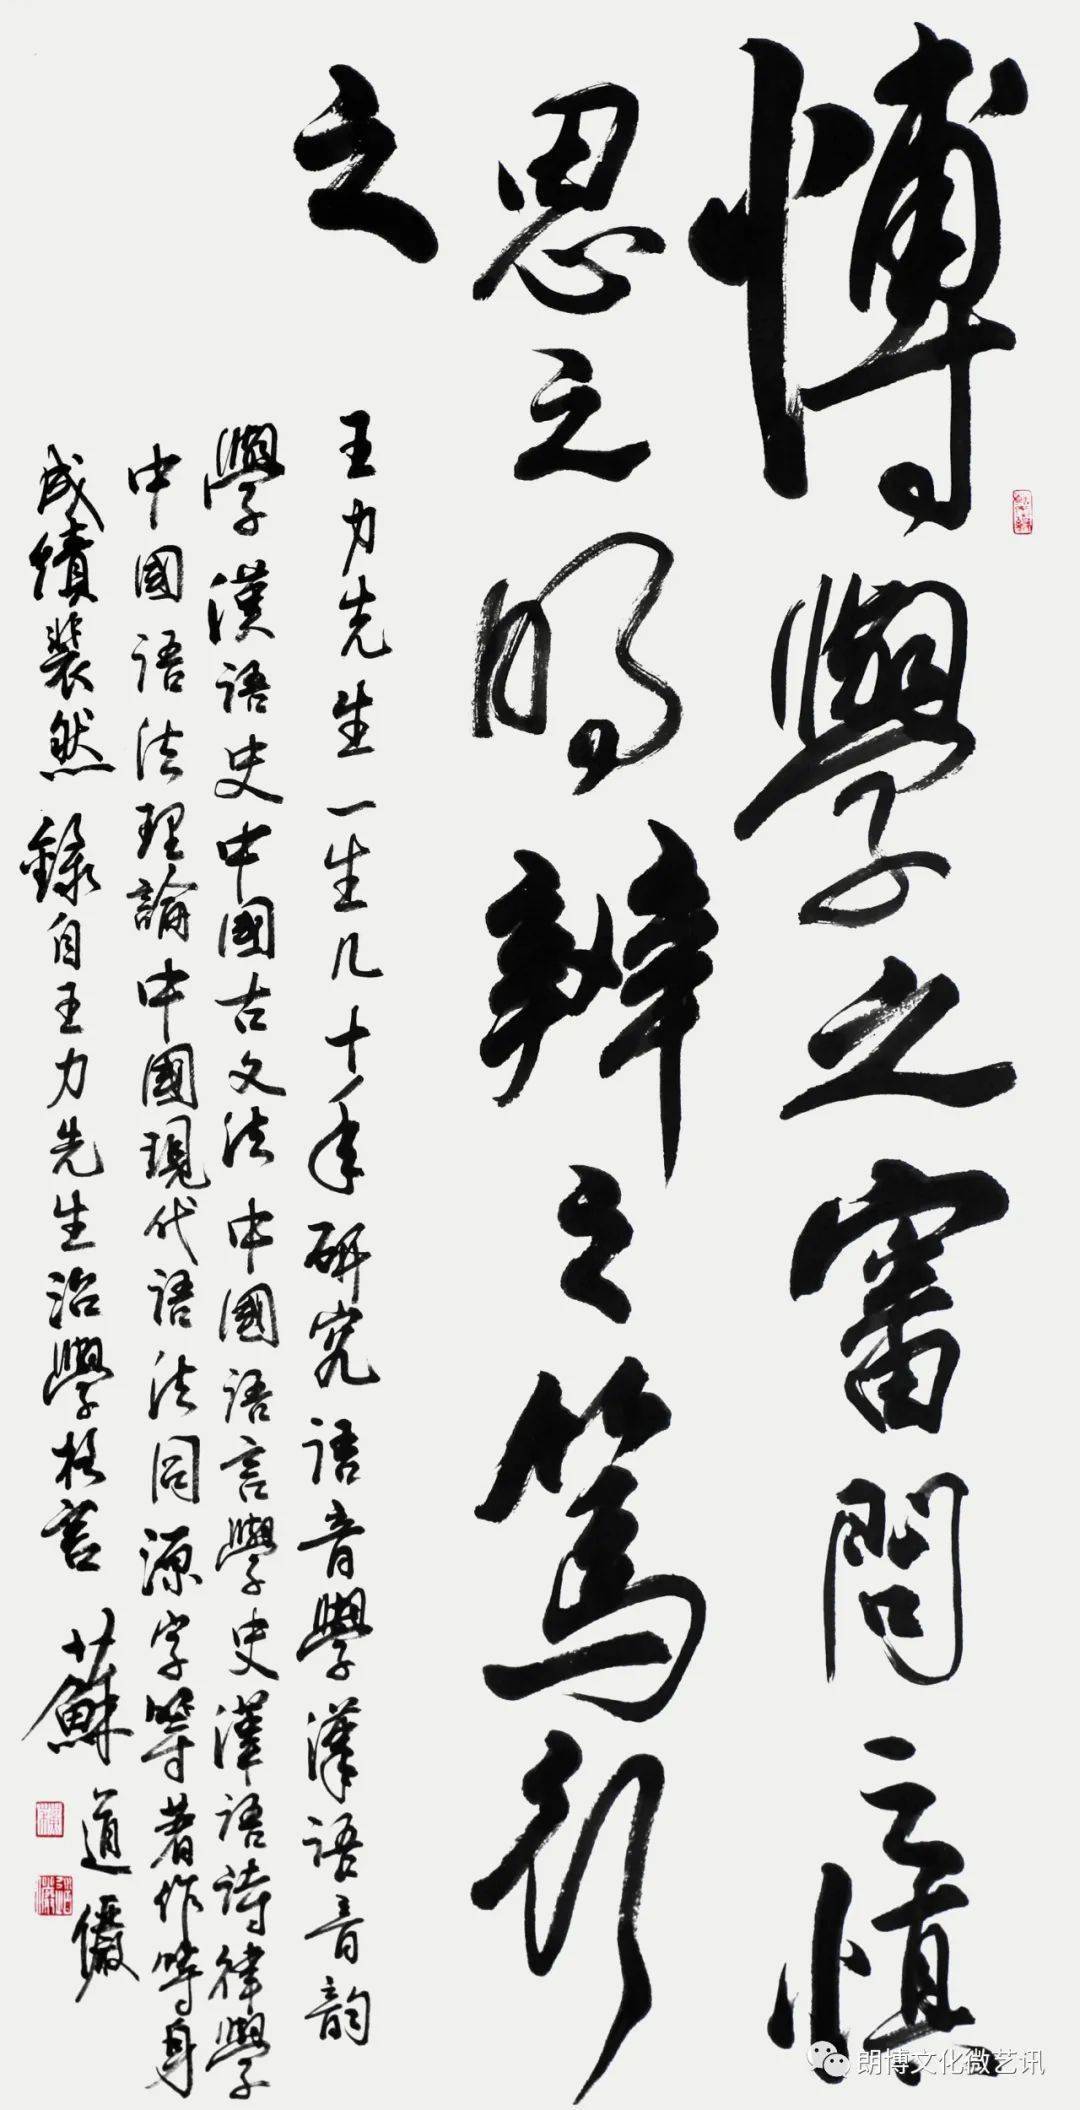 博學之審問之慎
思之明辨之篤行
之
王力先生一生几十年研究语音學漢语音韵
學漢语史中國古文法中國语言學史漢语詩律學
中國语法理論中國現代语法同源字等著作等身
成績裴然錄自王力先生治學格言
蘇道儼
朗博文化微艺讯